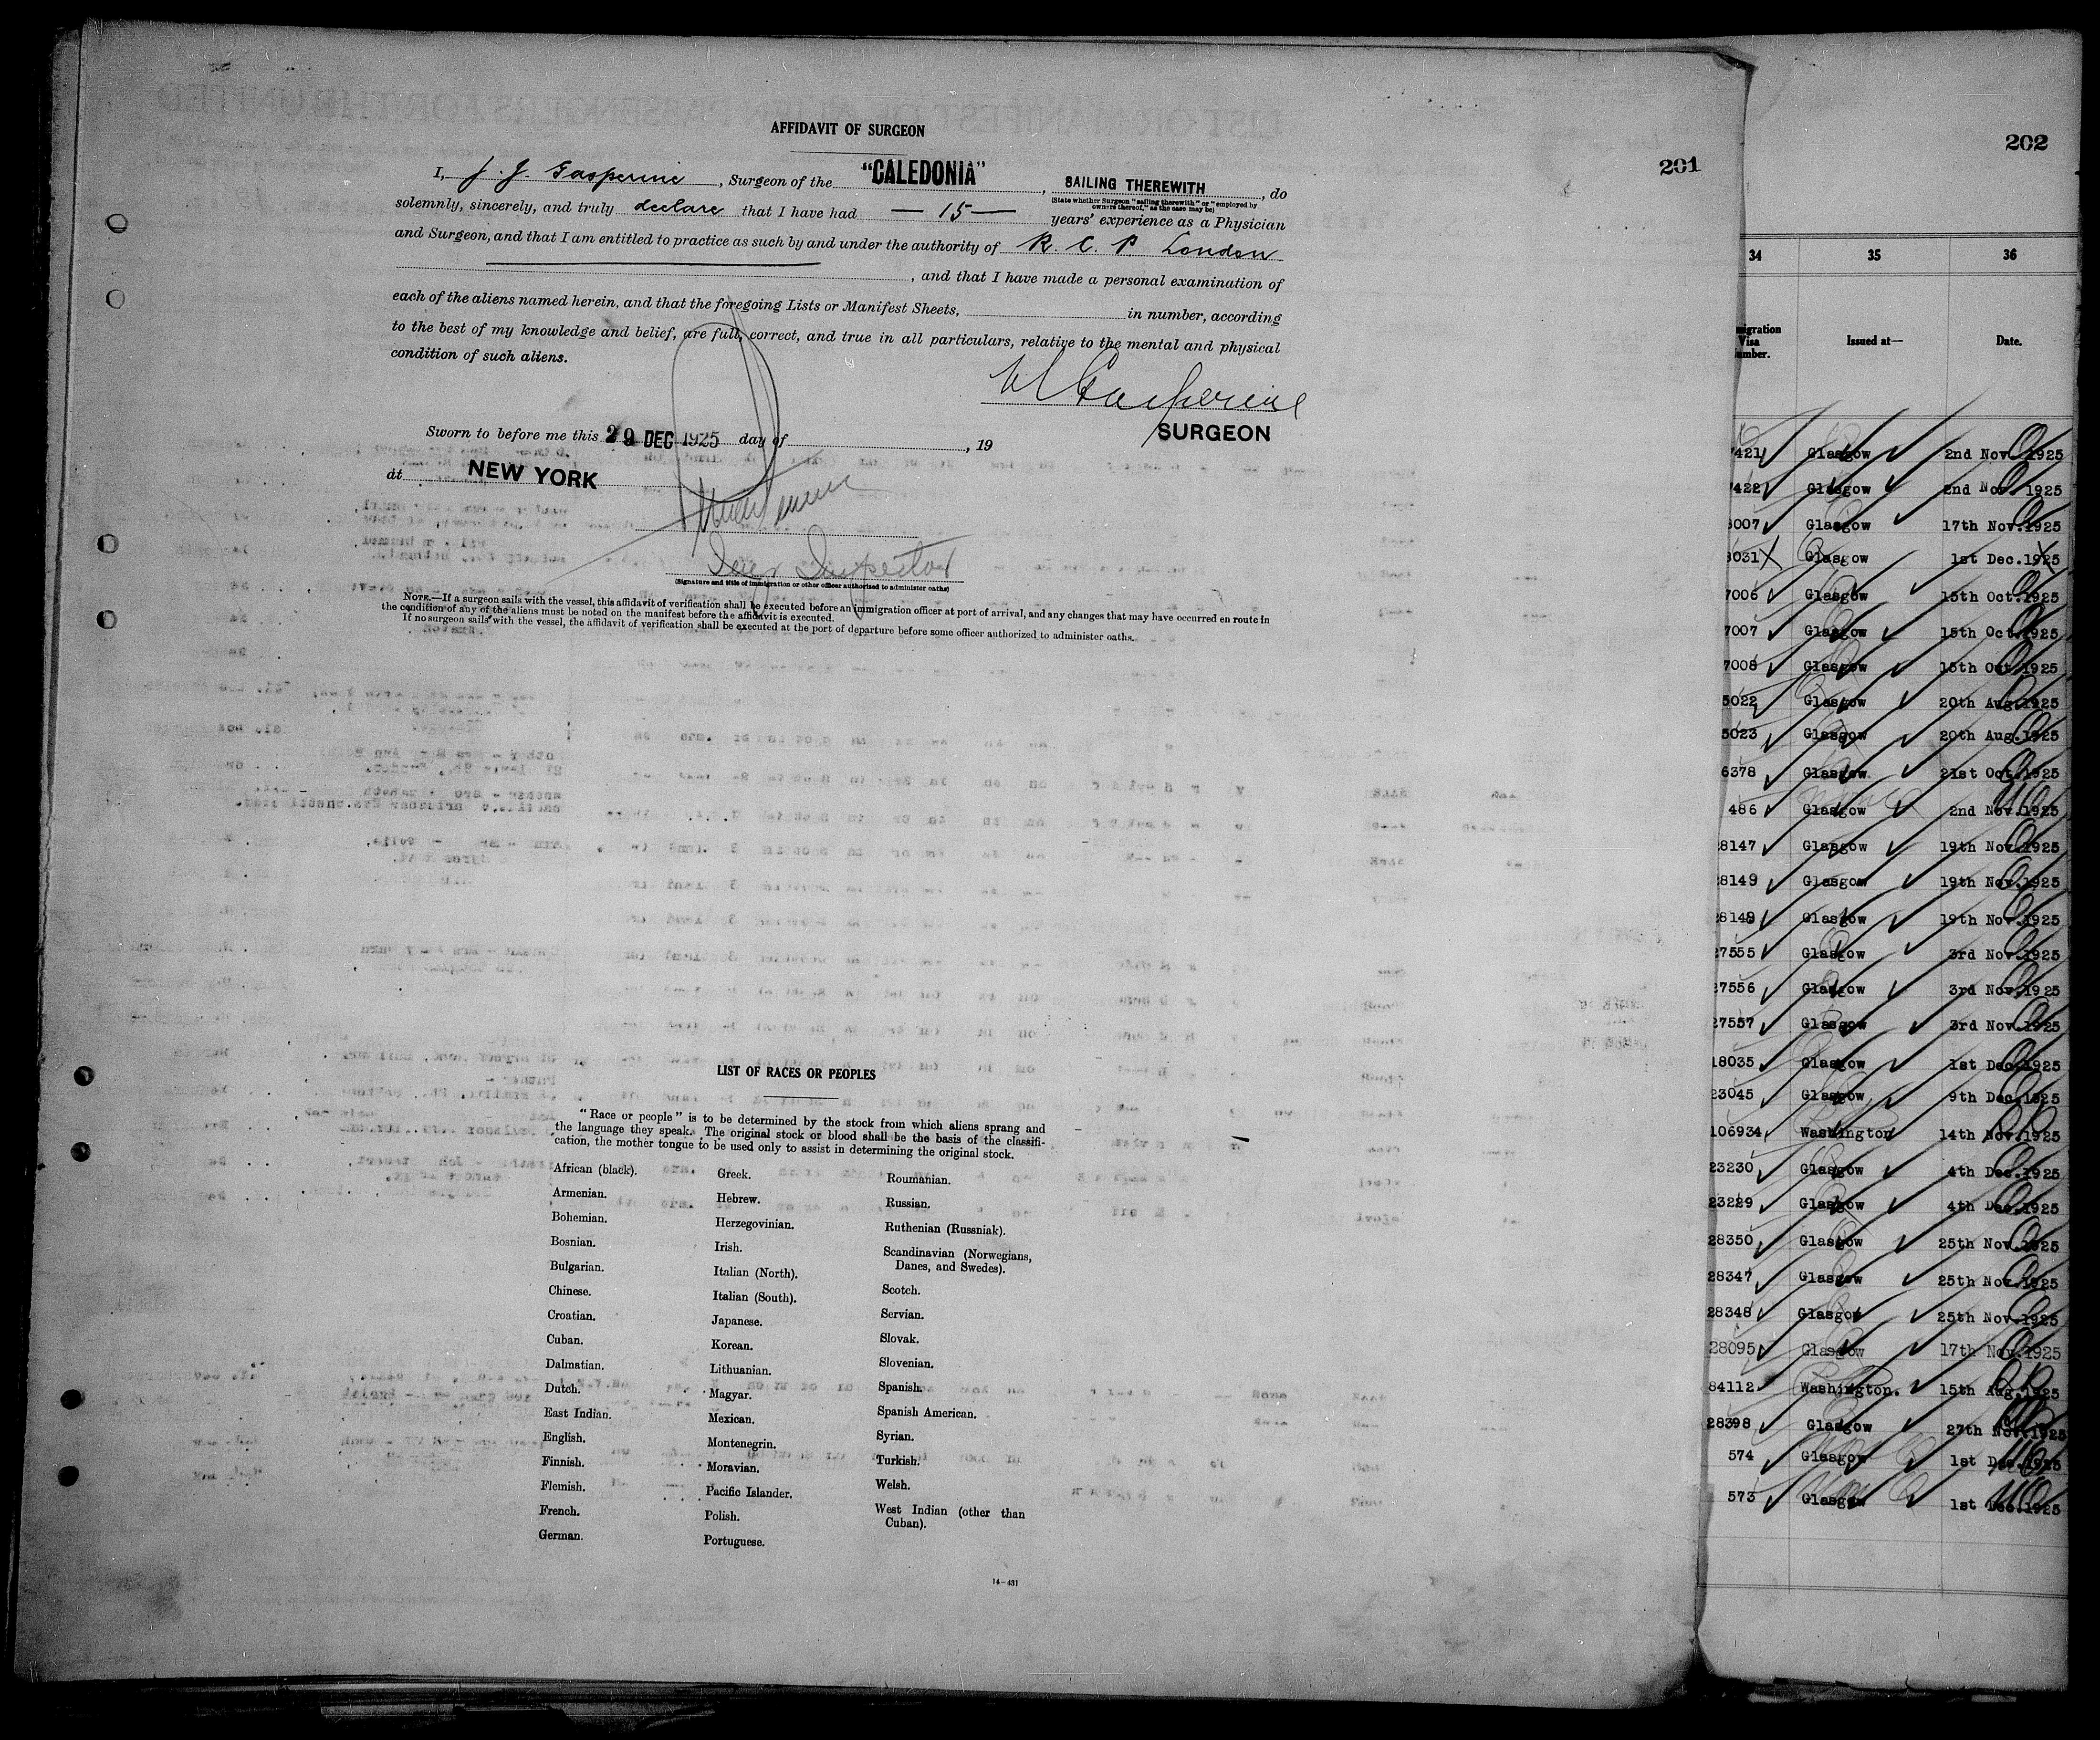 AFFIDAVIT OF SURGEON
I, J. J. Gasperine, Surgeon of the "CALEDONIA", SAILING THEREWITH, do
(State whether Surgeon "sailing therewith" or "employed by
owners thereof," as the case may be)
solemnly, sincerely, and truly declare that I have had — 15 — years' experience as a Physician
and Surgeon, and that I am entitled to practice as such by and under the authority of R. C. P. London
, and that I have made a personal examination of
each of the aliens named herein, and that the foregoing Lists or Manifest Sheets, in number, according
to the best of my knowledge and belief, are full, correct, and true in all particulars, relative to the mental and physical
condition of such aliens.
Gasperine
SURGEON
Sworn to before me this 29 DEC 1925 day of , 19
at NEW YORK
Inspector
(Signature and title of immigration or other officer authorised to administer oaths)
NOTE.—If a surgeon sails with the vessel, this affidavit of verification shall be executed before an immigration officer at port of arrival, and any changes that may have occurred en route in
the condition of any of the aliens must be noted on the manifest before the affidavit is executed.
If no surgeon sails with the vessel, the affidavit of verification shall be executed at the port of departure before some officer authorized to administer oaths.
LIST OF RACES OR PEOPLES
"Race or people" is to be determined by the stock from which aliens sprang and
the language they speak. The original stock or blood shall be the basis of the classifi-
cation, the mother tongue to be used only to assist in determining the original stock.
African (black).
Armenian.
Bohemian.
Bosnian.
Bulgarian.
Chinese.
Croatian.
Cuban.
Dalmatian.
Dutch.
East Indian.
English.
Finnish.
Flemish.
French.
German.
Greek.
Hebrew.
Herzegovinian.
Irish.
Italian (North).
Italian (South).
Japanese.
Korean.
Lithuanian.
Magyar.
Mexican.
Montenegrin.
Moravian.
Pacific Islander.
Polish.
Portuguese.
Roumanian.
Russian.
Ruthenian (Russniak).
Scandinavian (Norwegians,
Danes, and Swedes).
Scotch.
Servian.
Slovak.
Slovenian.
Spanish.
Spanish American.
Syrian.
Turkish.
Welsh.
West Indian (other than
Cuban).
14-431
201
202
34 35 36
Visa Issued at— Date.
421 Glasgow 2nd Nov. 1925
422 Glasgow 2nd Nov. 1925
8007 Glasgow 17th Nov. 1925
8031 Glasgow 1st Dec. 1925
7006 Glasgow 15th Oct. 1925
7007 Glasgow 15th Oct. 1925
7008 Glasgow 15th Oct. 1925
5022 Glasgow 20th Aug. 1925
5023 Glasgow 20th Aug. 1925
6378 Glasgow 21st Oct. 1925
486 Glasgow 2nd Nov. 1925
28147 Glasgow 19th Nov. 1925
28149 Glasgow 19th Nov. 1925
28148 Glasgow 19th Nov. 1925
27555 Glasgow 3rd Nov. 1925
27556 Glasgow 3rd Nov. 1925
27557 Glasgow 3rd Nov. 1925
18035 Glasgow 1st Dec. 1925
23045 Glasgow 9th Dec. 1925
106934 Washington 14th Nov. 1925
23230 Glasgow 4th Dec. 1925
23229 Glasgow 4th Dec. 1925
28350 Glasgow 25th Nov. 1925
28347 Glasgow 25th Nov. 1925
28348 Glasgow 25th Nov. 1925
28095 Glasgow 17th Nov. 1925
84112 Washington. 15th Aug. 1925
28398 Glasgow 27th Nov. 1925
574 Glasgow 1st Dec. 1925
573 Glasgow 1st Dec. 1925